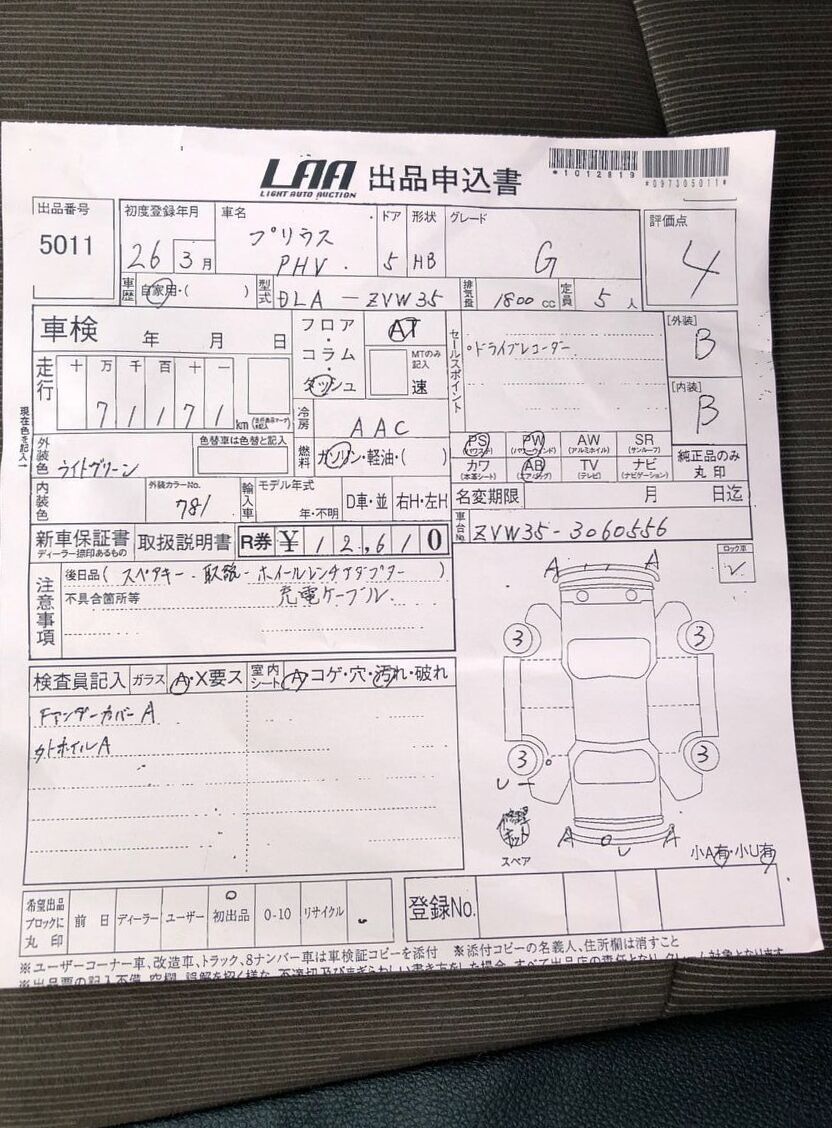 LAA 出品申込書
LIGHT AUTO AUCTION
*1012819
*097305011*
出品番号
5011
初度登録年月
26 3月
車名
プリウス
PHV.
ドア
5
形状
HB
グレード
G
評価点
4
車歴 自家用・( )
型式 DLA-ZVW35
排気量 1800 cc
定員 5 人
車検 年 月 日
フロア・コラム・ダッシュ
AT
MTのみ記入
速
セールスポイント
ドライブレコーダー
[外装]
B
[内装]
B
走行
十 万 千 百 十 一
7 1 1 7 1 km
現在色を記入→
冷房 AAC
外装色 ライトグリーン
色替車は色替と記入
燃料 ガソリン・軽油・( )
PS PW AW SR
(パワステ) (パワーウィンド) (アルミホイル) (サンルーフ)
カワ AB TV ナビ
(本革シート) (エアバッグ) (テレビ) (ナビゲーション)
純正品のみ丸印
内装色
外装カラーNo.
781
輸入車
モデル年式
年・不明
D車・並
右H・左H
名変期限 月 日迄
車台No. ZVW35-3060556
新車保証書
ディーラー捺印あるもの
取扱説明書
R券 ¥ 12,610
注意事項
後日品( スペアキー・取説-ホイールレンチアダプター )
不具合箇所等 充電ケーブル
ロック車
レ
検査員記入 ガラス A・X要ス 室内シート A コゲ・穴・汚れ・破れ
FアンダーカバーA
タトホイルA
A A
3 3
3 3
U
修理キット
スペア
A U A
小A有・小U有
希望出品ブロックに丸印
前 日
ディーラー
ユーザー
初出品
0-10
リサイクル
登録No.
※ユーザーコーナー車、改造車、トラック、8ナンバー車は車検証コピーを添付 ※添付コピーの名義人、住所欄は消すこと
※出品票の記入不備、空欄、誤解を招く様な、不適切及びまぎらわしい書き方をした場合、すべて出品店の責任となり、クレーム対象となります